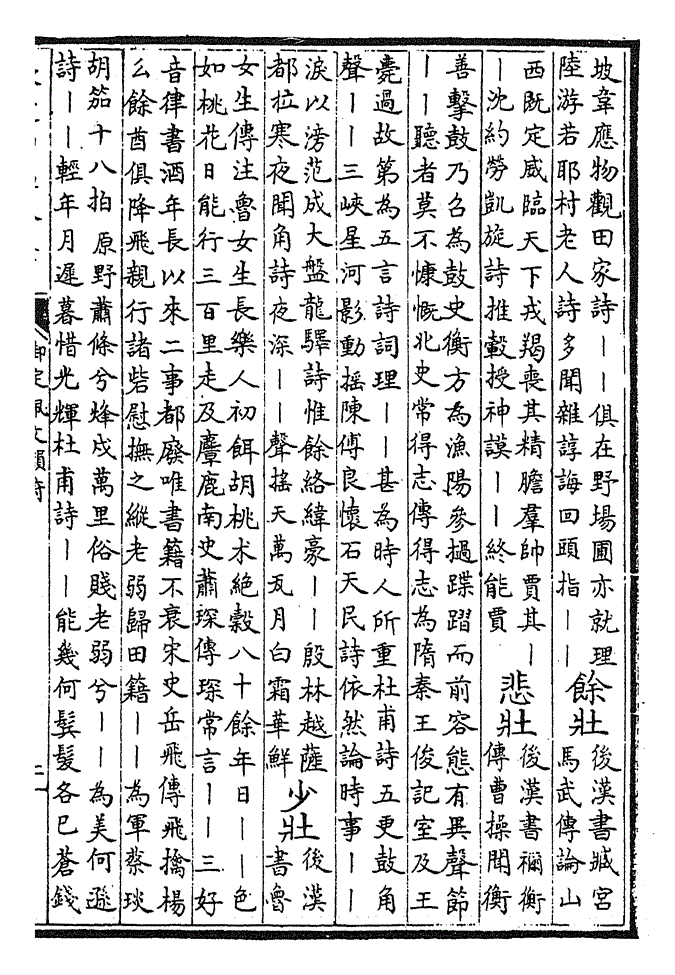 坡韋應物觀田家詩｜｜俱在野場圃亦就理
陸游若耶村老人詩多聞雜諄誨回頭指｜｜
餘壯
後漢書臧宮
馬武傳論山
西既定威臨天下戎羯喪其精膽羣帥賈其｜
｜沈約勞凱旋詩推轂授神謨｜｜終能賈
悲壯
後漢書禰衡
傳曹操聞衡
善擊鼓乃召為鼓史衡方為漁陽參撾蹀躧而前容態有異聲節
｜｜聽者莫不慷慨北史常得志傳得志為隋秦王俊記室及王
薨過故第為五言詩詞理｜｜甚為時人所重杜甫詩五更鼓角
聲｜｜三峽星河影動搖陳傅良懷石天民詩依然論時事｜｜
淚以滂范成大盤龍驛詩惟餘絡緯豪｜｜殷林越薩
都拉寒夜聞角詩夜深｜｜聲搖天萬瓦月白霜華鮮
少壯
後漢
書魯
女生傳注魯女生長樂人初餌胡桃术絶穀八十餘年日｜｜色
如桃花日能行三百里走及麞鹿南史蕭琛傳琛常言｜｜三好
音律書酒年長以來二事都廢唯書籍不衰宋史岳飛傳飛擒楊
么餘酋俱降飛親行諸砦慰撫之縱老弱歸田籍｜｜為軍蔡琰
胡笳十八拍原野蕭條兮烽戍萬里俗賤老弱兮｜｜為美何遜
詩｜｜輕年月遲暮惜光輝杜甫詩｜｜能幾何鬂髮各已蒼錢
御定佩文韻府